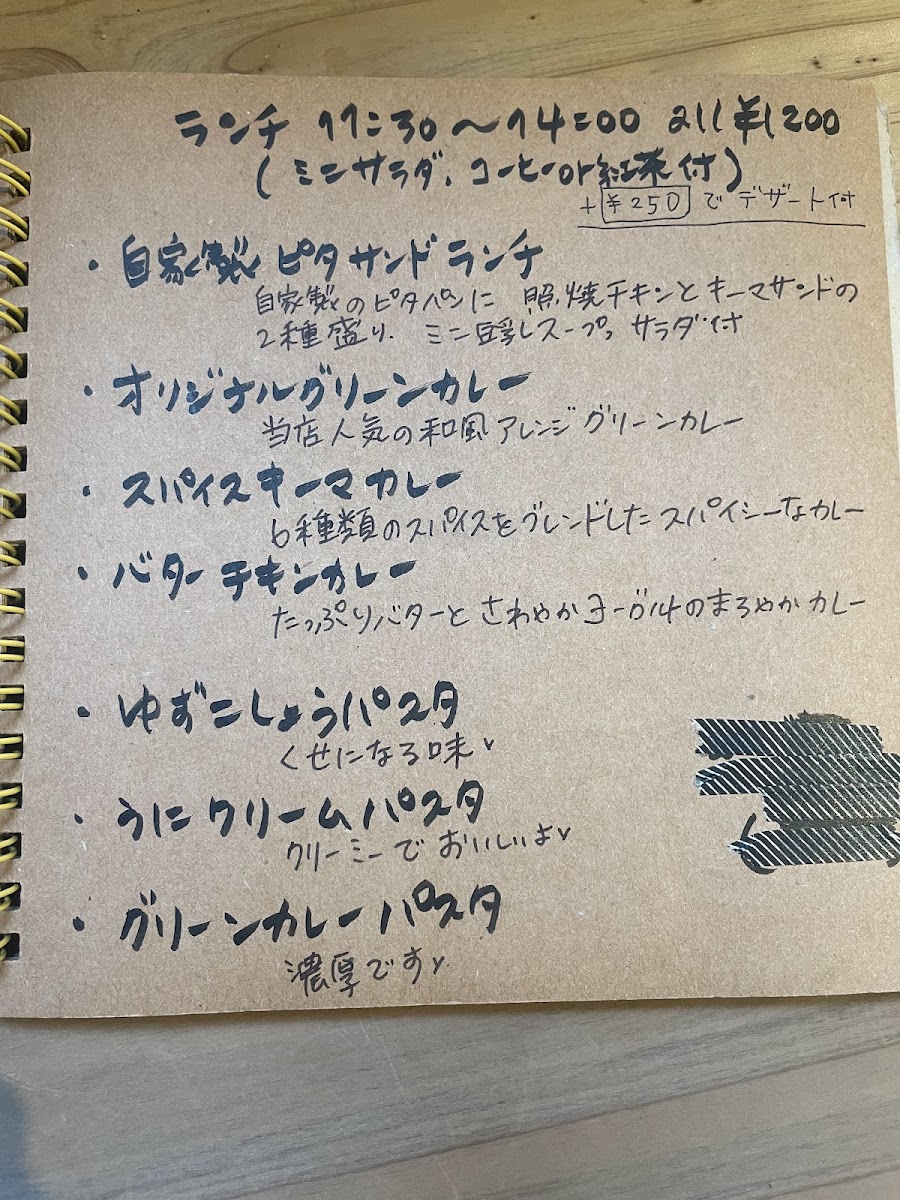 ランチ 11:30～14:00 all ¥1200
(ミニサラダ、コーヒーor紅茶付)
+¥250でデザート付
・自家製ピタサンドランチ
自家製のピタパンに 照焼チキンとキーマサンドの
2種盛り、ミニ豆乳スープ。サラダ付
・オリジナルグリーンカレー
当店人気の和風アレンジグリーンカレー
・スパイスキーマカレー
6種類のスパイスをブレンドしたスパイシーなカレー
・バターチキンカレー
たっぷりバターとさわやかヨーグルトのまろやかカレー
・ゆずこしょうパスタ
くせになる味♥
・うにクリームパスタ
クリーミーでおいしいよ♥
・グリーンカレーパスタ
濃厚です♥